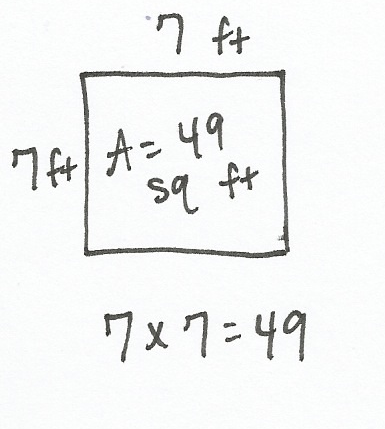 7 ft
7 ft
A = 49
sq ft
7 x 7 = 49